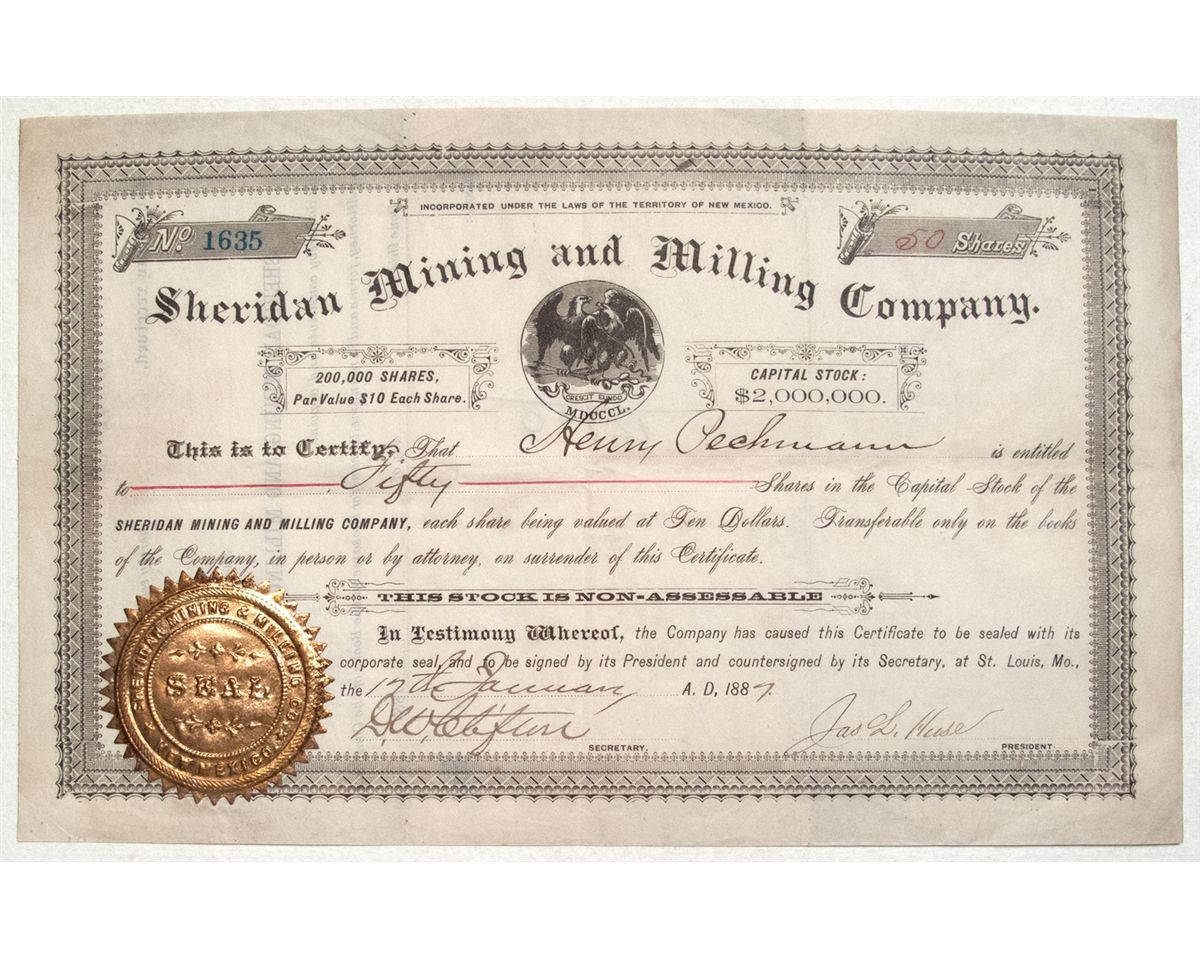 INCORPORATED UNDER THE LAWS OF THE TERRITORY OF NEW MEXICO.
No. 1635
50 Shares
Sheridan Mining and Milling Company.
CRESCIT EUNDO
MDCCCL.
200,000 SHARES,
Par Value $10 Each Share.
CAPITAL STOCK:
$2,000,000.
This is to Certify, That Henry Pechmann is entitled
to Fifty Shares in the Capital Stock of the
SHERIDAN MINING AND MILLING COMPANY, each share being valued at Ten Dollars. Transferable only on the books
of the Company, in person or by attorney, on surrender of this Certificate.
THIS STOCK IS NON-ASSESSABLE
In Testimony Whereof, the Company has caused this Certificate to be sealed with its
corporate seal, and to be signed by its President and countersigned by its Secretary, at St. Louis, Mo.,
the 17th January A. D, 1887.
D.W. Clifton SECRETARY,
Jas L. Huse PRESIDENT
SHERIDAN MINING & MILLING CO.
SEAL
NEW MEXICO